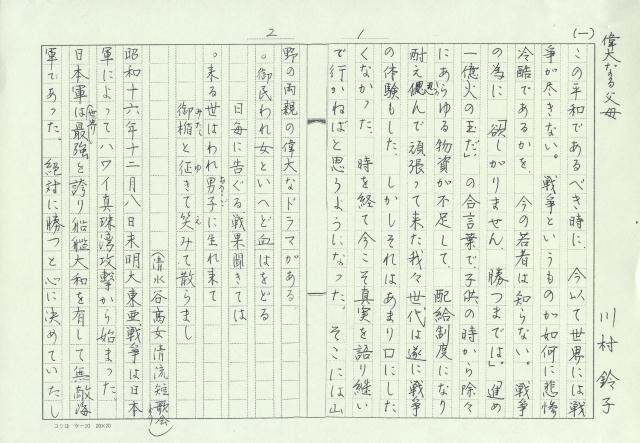 (一)
偉大なる父母
川村鈴子
この平和であるべき時に、今以て世界には戦
争が尽きない。戦争というものが如何に悲惨
冷酷であるかを、今の若者は知らない。戦争
の為に「欲しがりません、勝つまでは」「進め
一億火の玉だ」の合言葉で子供の時から除々
にあらゆる物資が不足して、配給制度になり
耐え偲んで頑張って来た我々世代は遂に戦争
の体験もした。しかしそれはあまり口にした
くなかった。時を経て今こそ真実を語り継い
で行かねばと思うようになった。そこには山
1
2
野の両親の偉大なドラマがある
。御民われ女といへど血はをどる
日毎に告ぐる戦果聞きては
。来る世はわれ男子に生れ来て
御楯と征きて笑みて散らまし
(清水谷高女清流短歌会より)
昭和十六年十二月八日未明大東亜戦争は日本
軍によってハワイ真珠湾攻撃から始まった。
日本軍は世界最強を誇り船艦大和を有して無敵海
軍であった。絶対に勝つと心に決めていたし
コクヨ ケ-20 20×20